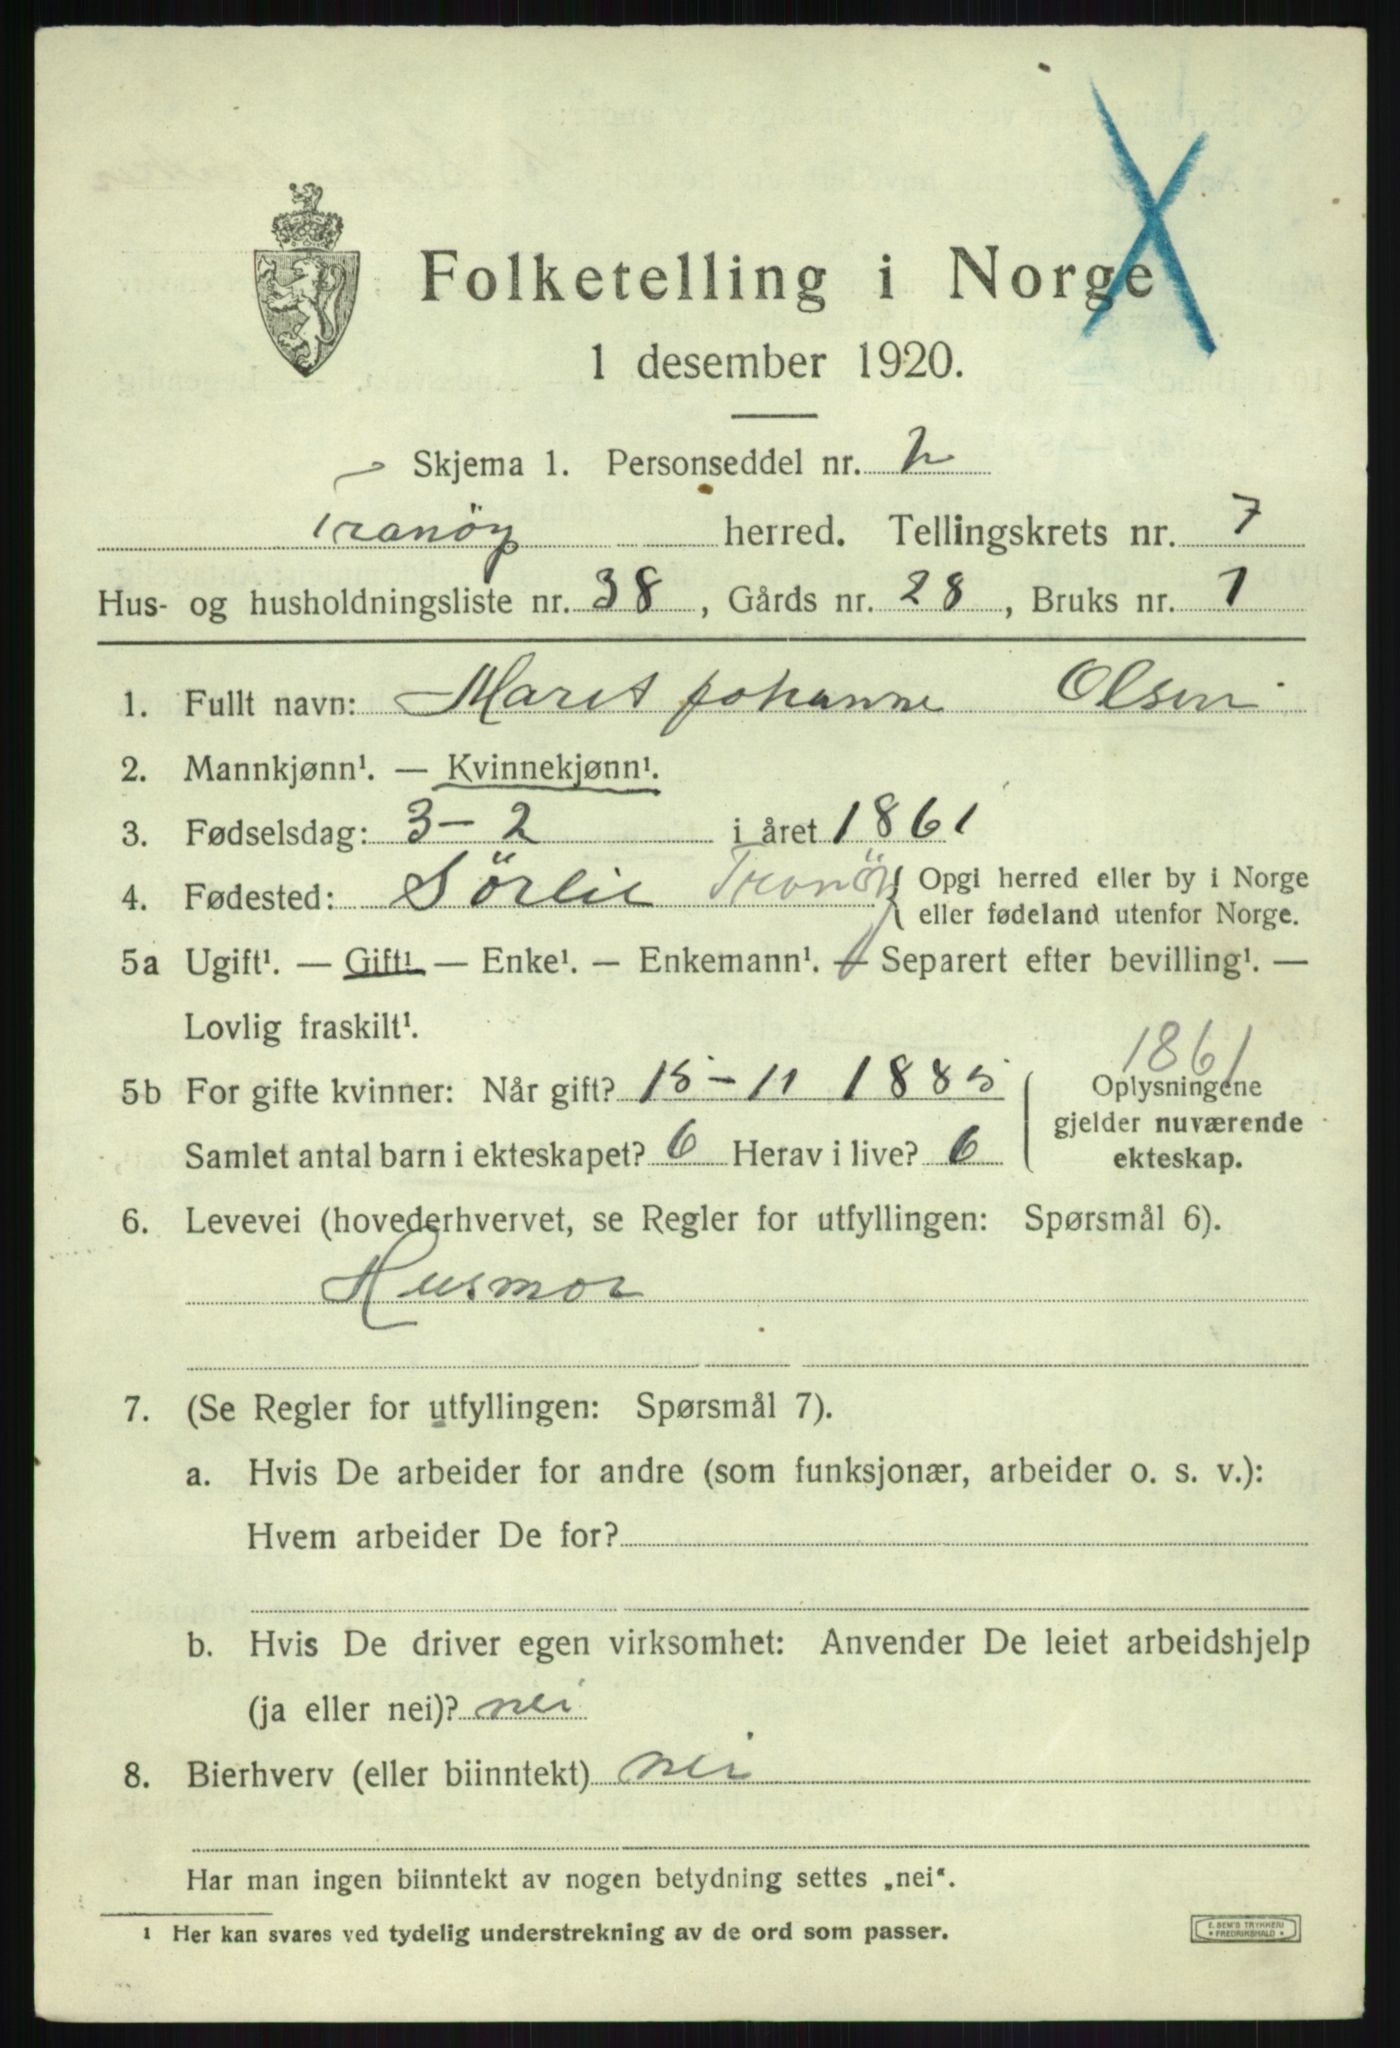 Folketelling i Norge
1 desember 1920.
Skjema 1. Personseddel nr. 2
Tranöy herred. Tellingskrets nr. 7
Hus- og husholdningsliste nr. 38, Gårds nr. 28, Bruks nr. 1
1. Fullt navn: Marit Johanne Olsen
2. Mannkjønn¹. — Kvinnekjønn¹.
3. Fødselsdag: 3-2 i året 1861
4. Fødested: Sörlie Tranöy { Opgi herred eller by i Norge
eller fødeland utenfor Norge.
5a Ugift¹. — Gift¹ — Enke¹. — Enkemann¹. — Separert efter bevilling¹. —
Lovlig fraskilt¹.
1861
5b For gifte kvinner: Når gift? 15-11 1885 ( Oplysningene
gjelder nuværende
Samlet antal barn i ekteskapet? 6 Herav i live? 6 ekteskap.
6. Levevei (hovederhvervet, se Regler for utfyllingen: Spørsmål 6).
Husmor
7. (Se Regler for utfyllingen: Spørsmål 7).
a. Hvis De arbeider for andre (som funksjonær, arbeider o. s. v.):
Hvem arbeider De for?
b. Hvis De driver egen virksomhet: Anvender De leiet arbeidshjelp
(ja eller nei)? nei
8. Bierhverv (eller biinntekt) nei
Har man ingen biinntekt av nogen betydning settes „nei“.
¹ Her kan svares ved tydelig understrekning av de ord som passer.
E. SEM'S TRYKKERI
* FREDRIKSHALD *